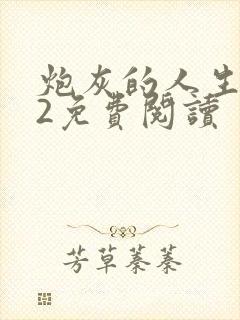 炮灰的人生
2免費閱讀
芳草蓁蓁